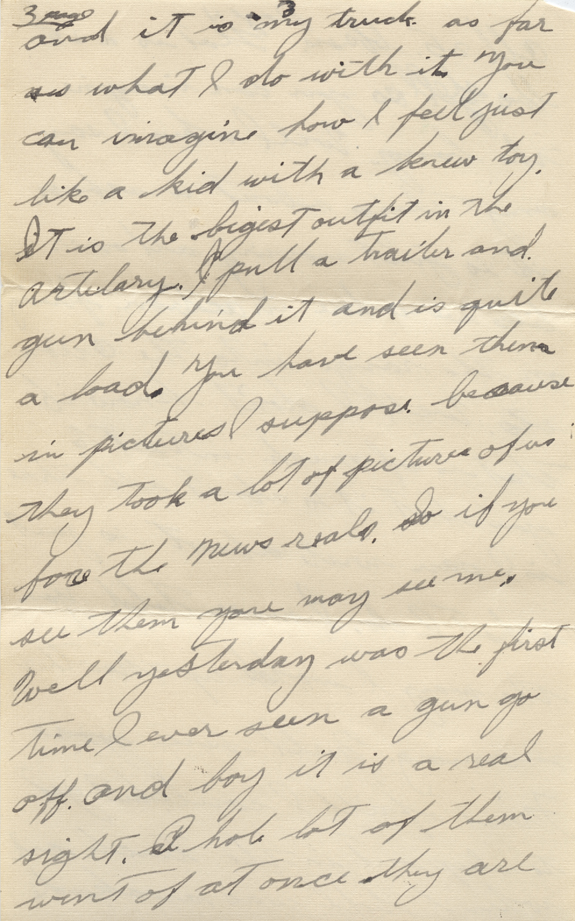 3
and it is my truck as far
as what I do with it. You
can imagine how I feel just
like a kid with a knew toy.
It is the bigest outfit in the
artelary. I pull a trailer and
gun behind it and is quite
a load. You have seen them
in pictures I suppose. because
they took a lot of pictures of us
fore the News reals. so if you
see them you may see me.
Well yesterday was the first
time I ever seen a gun go
off. and boy it is a real
sight. A hole lot of them
went of at once they are